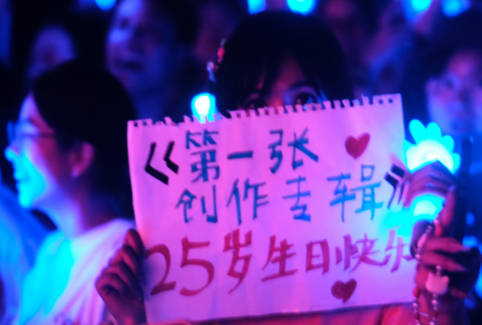 《第一张
创作专辑》
25岁生日快乐